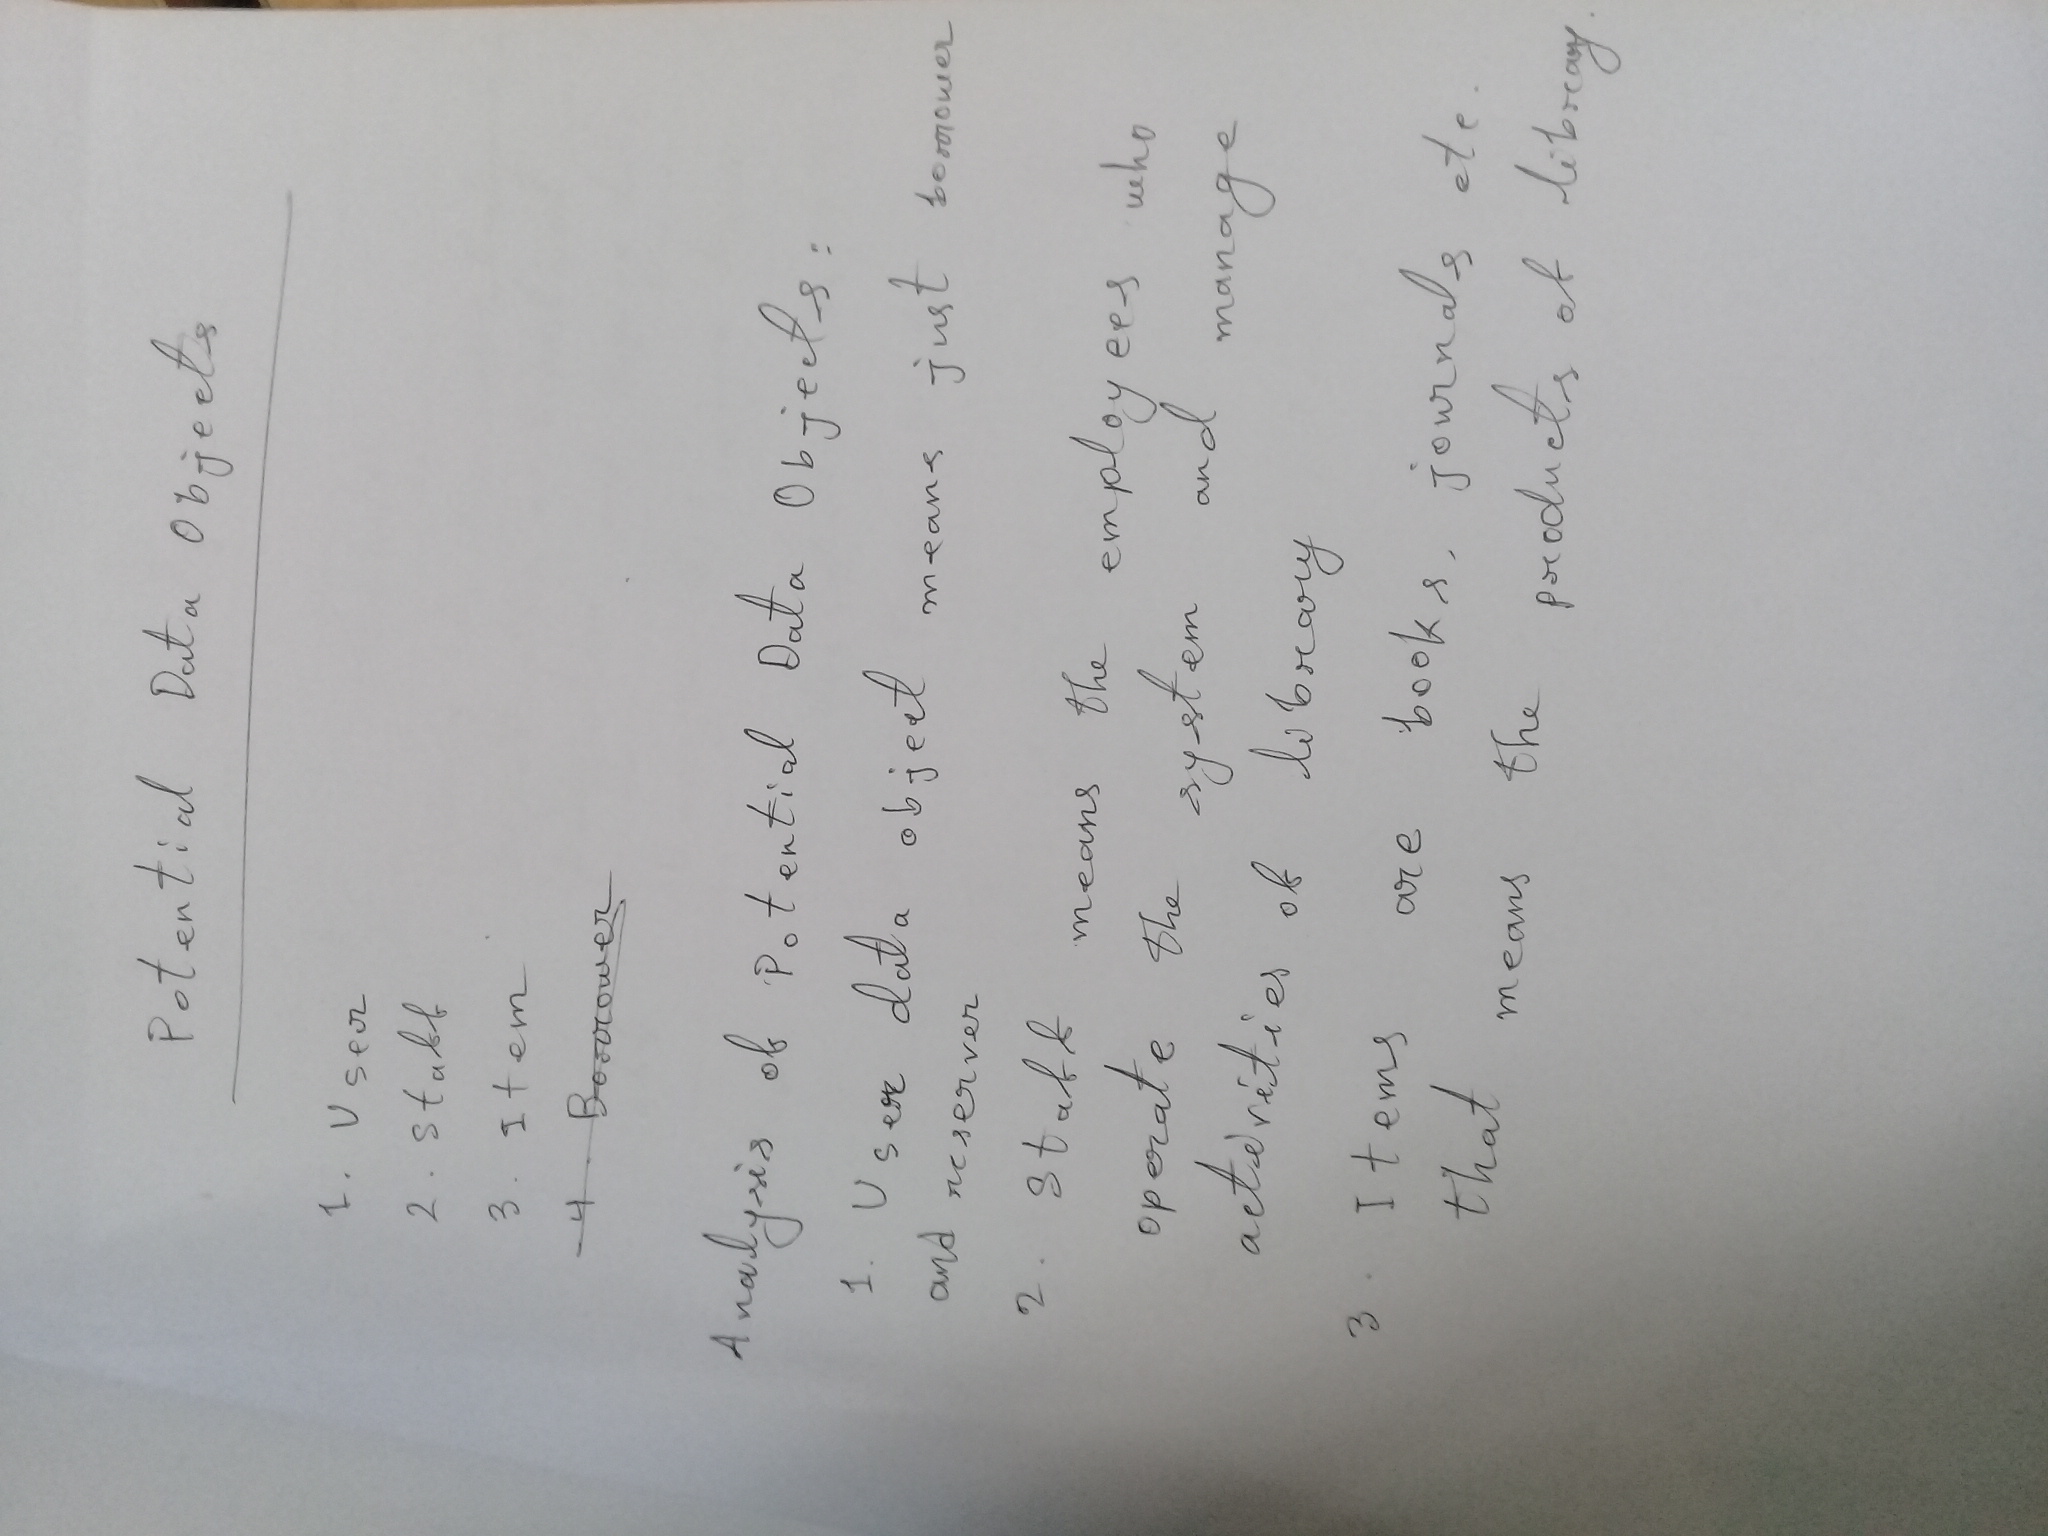 Potential Data Objects
1. User
2. Staff
3. Item
4. Borrower
Analysis of Potential Data Objects:
1. User data object means just borrower
and reserver
2. Staff means the employees who
operate the system and manage
activities of library
3. Items are books, journals etc.
that means the products of library.